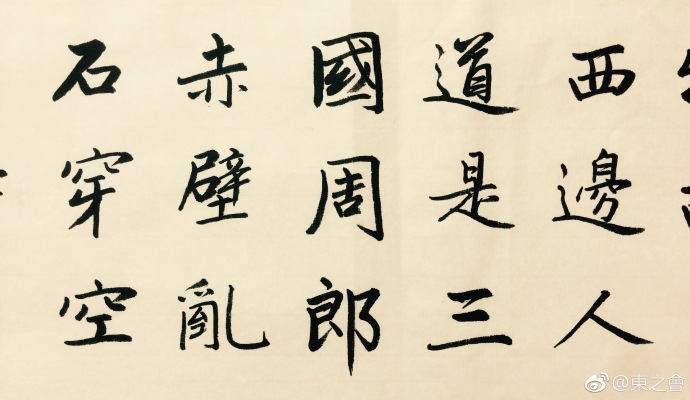 西邊人
道是三
國周郎
赤壁亂
石穿空
@東之會